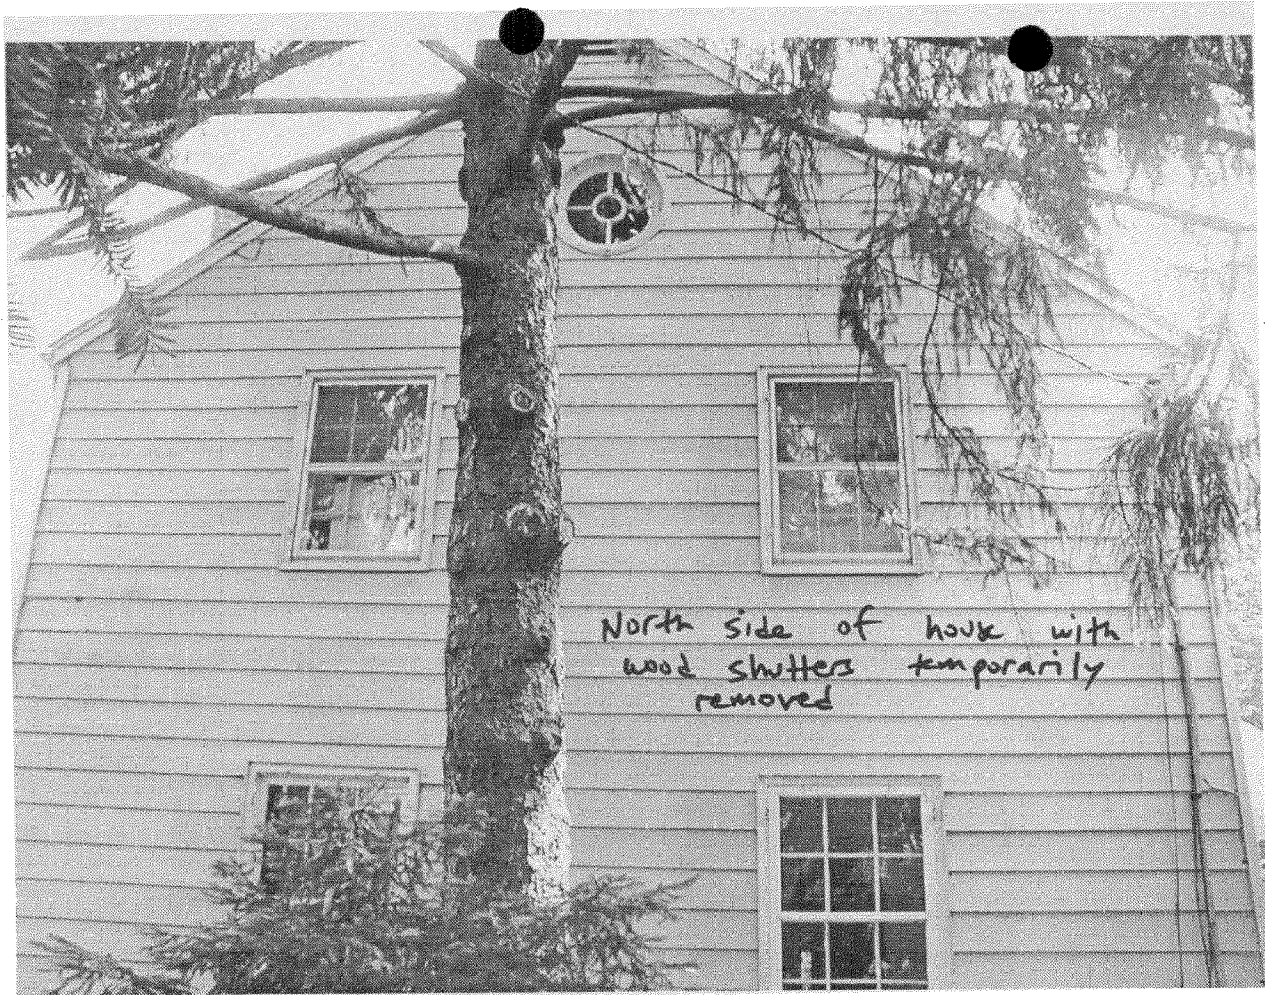 North side of house with
wood shutters temporarily
removed